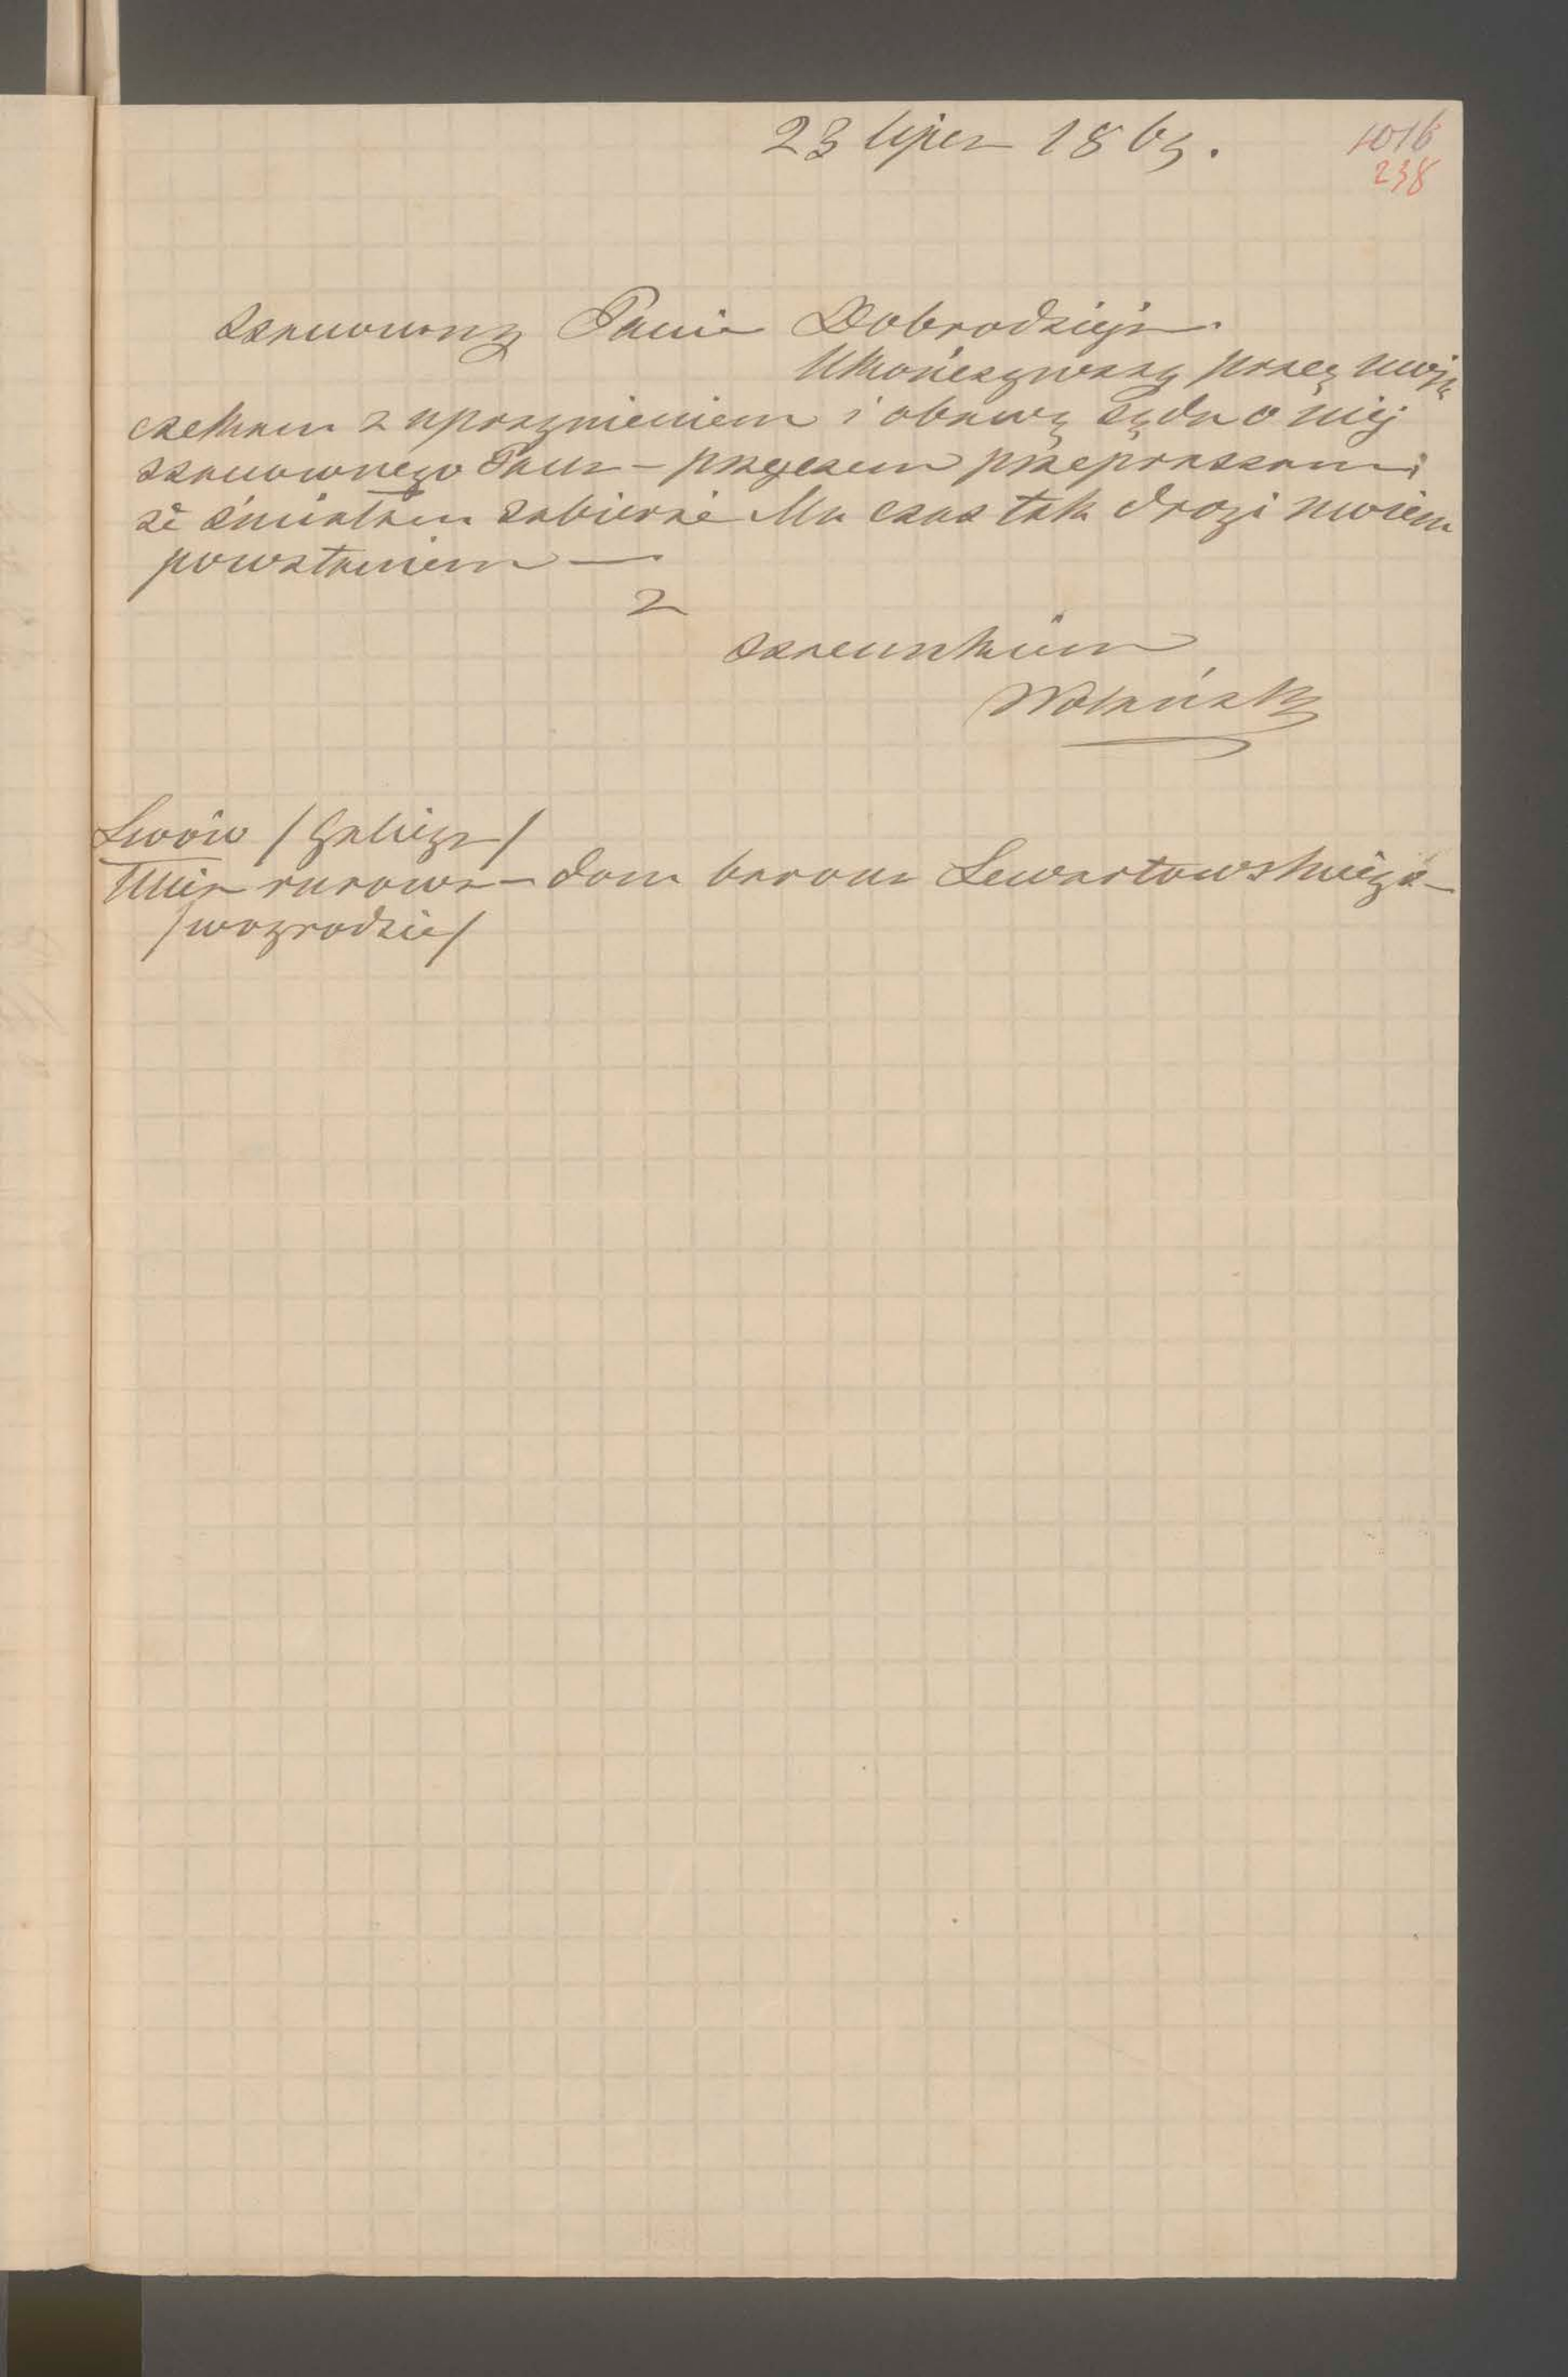 23 lipca 1865.
1016
238
Szanowny Panie Dobrodzieju.
Ukończywszy pracę moję
czekam z upragnieniem i obawą sądu o niéj
szanownego Pana – przyczem przepraszam
że śmiałem zabierać Mu czas tak drogi
powstaniem —
Z
szacunkiem
Wolański
Lwów /Galicya/
Ulica rurowa – dom barona Lewartowskiego –
/w ogrodzie/